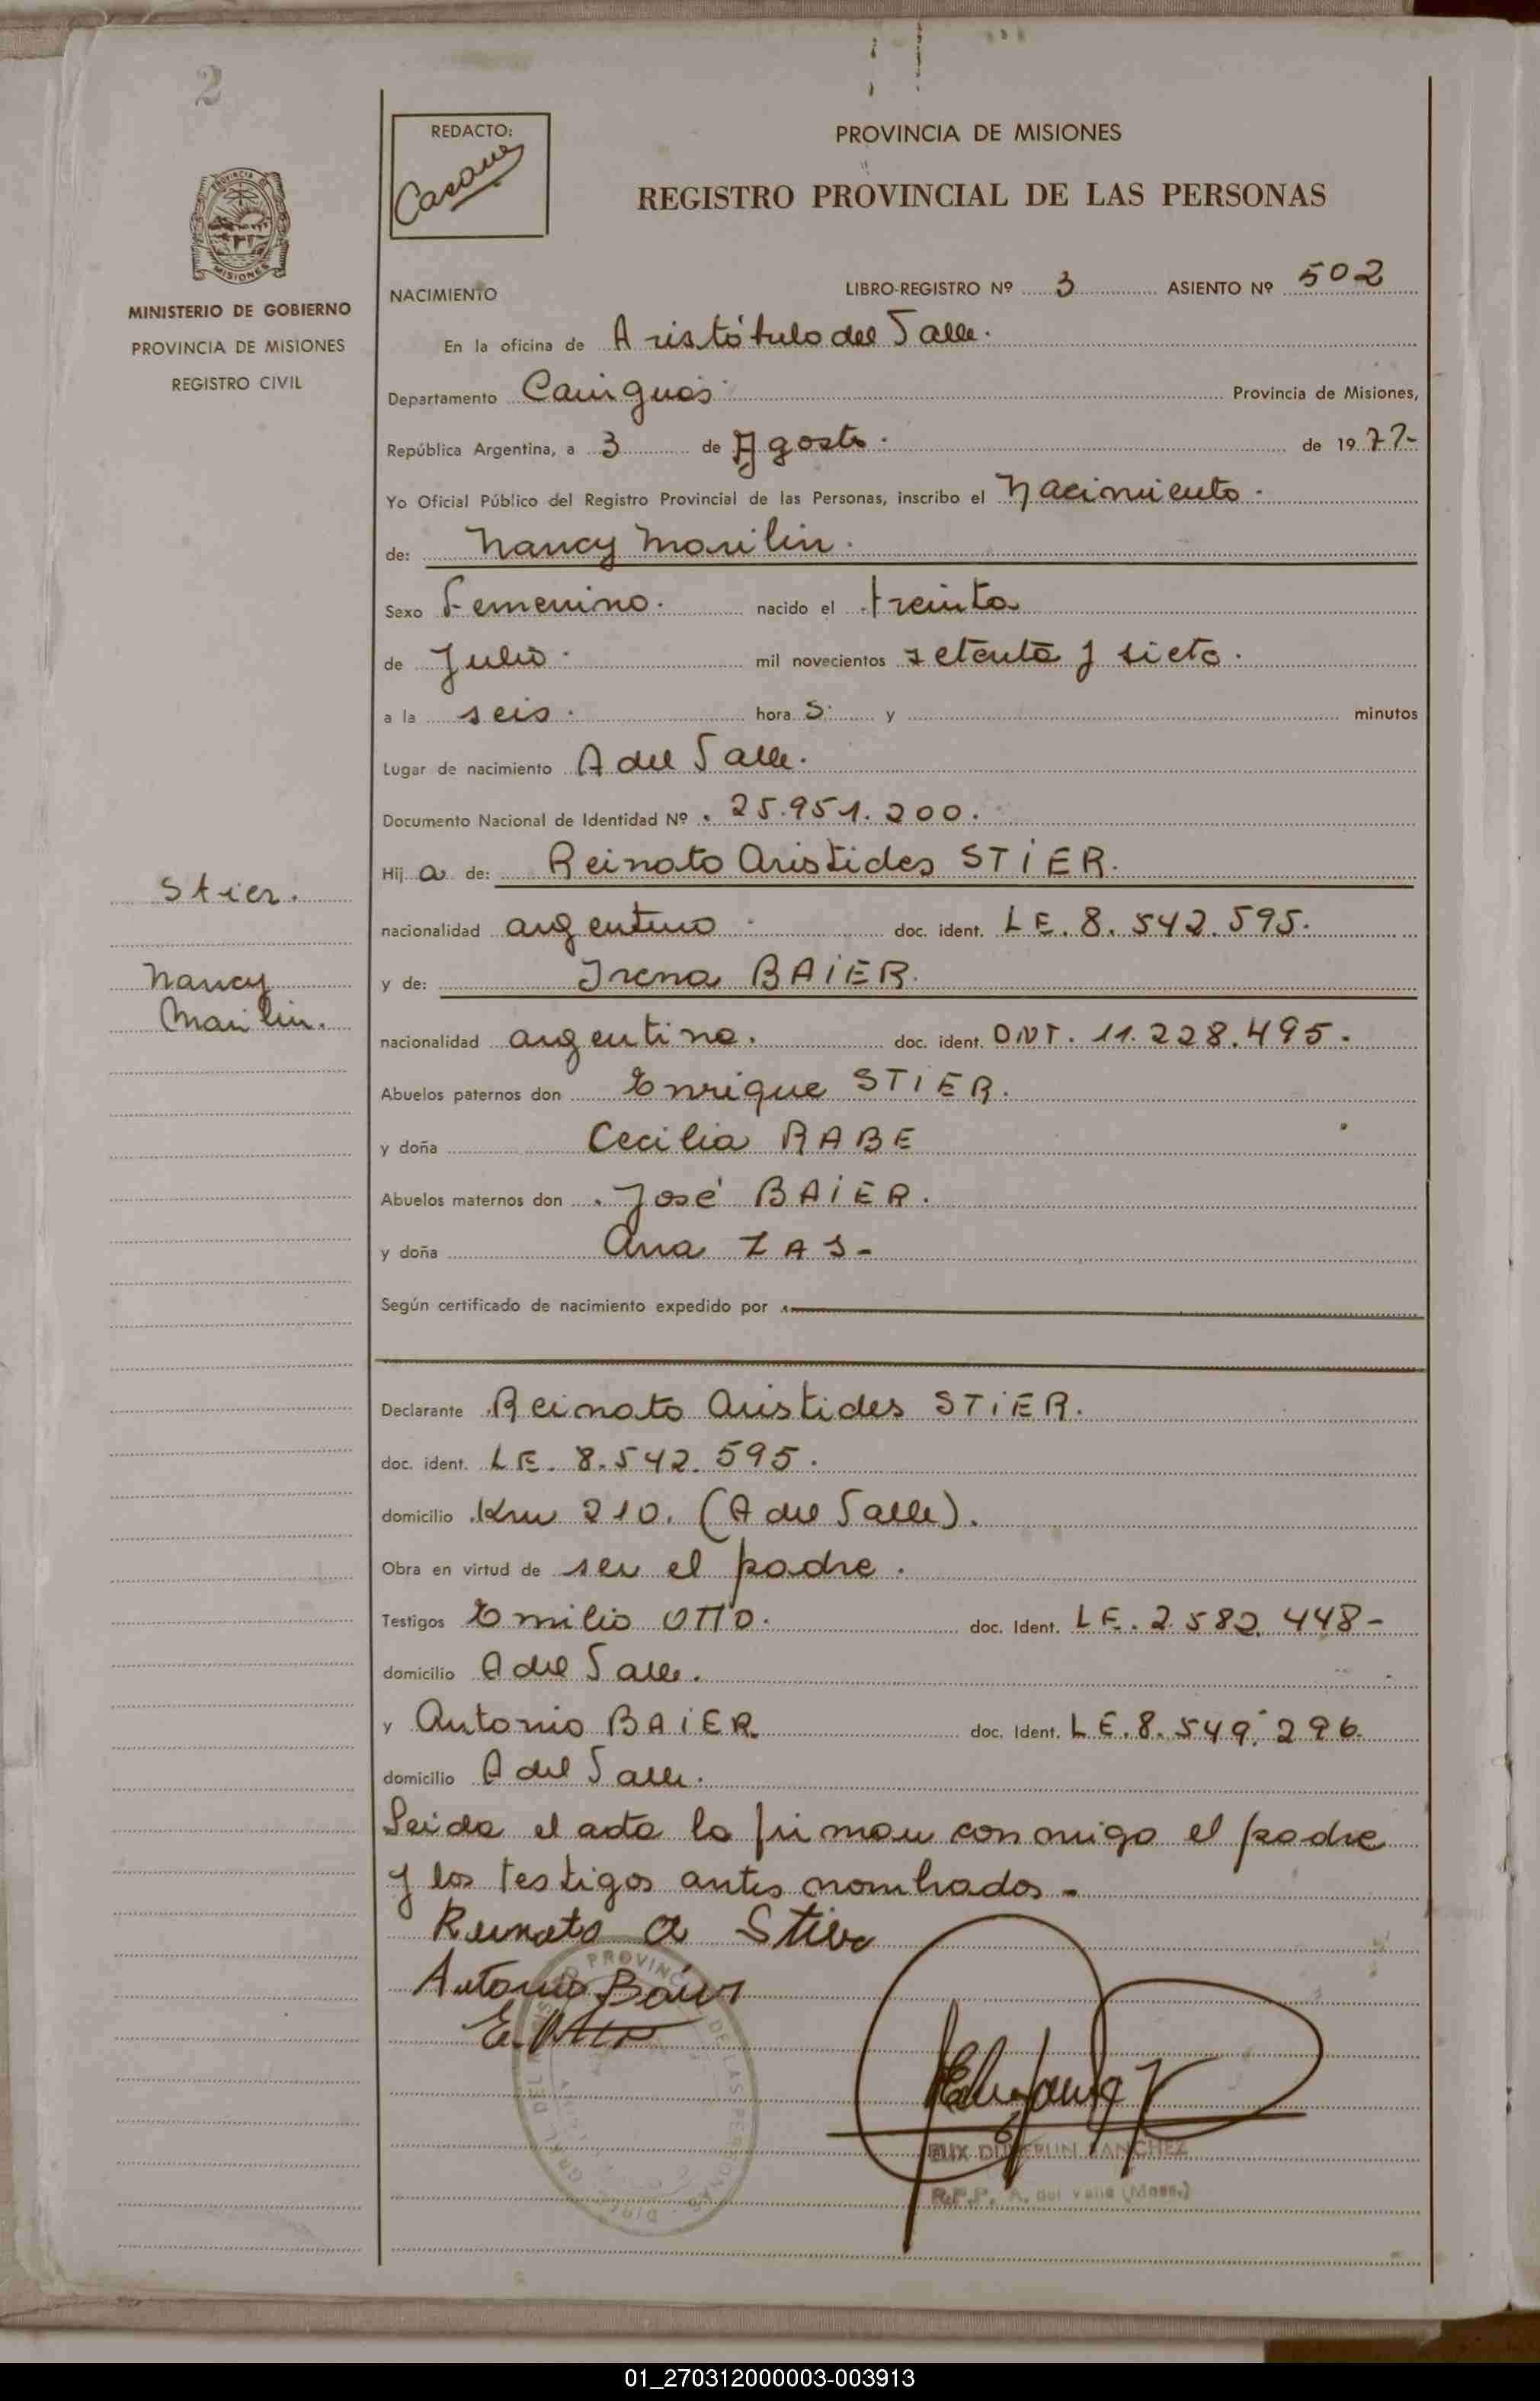 2
REDACTO:
PROVINCIA DE MISIONES
REGISTRO PROVINCIAL DE LAS PERSONAS
PROVINCIA DE
MISIONES
MINISTERIO DE GOBIERNO
PROVINCIA DE MISIONES
REGISTRO CIVIL
NACIMIENTO LIBRO-REGISTRO Nº 3 ASIENTO Nº 502
En la oficina de Aristóbulo del Valle.
Departamento Cainguás Provincia de Misiones,
República Argentina, a 3 de Agosto. de 1977-
Yo Oficial Público del Registro Provincial de las Personas, inscribo el Nacimiento.
de: Nancy Marilin.
Sexo Femenino. nacido el treinta
de Julio. mil novecientos setenta y siete.
a la seis. hora s. y minutos
Lugar de nacimiento A del Valle.
Documento Nacional de Identidad Nº 25.951.200.
Hij a de: Reinato Aristides STIER.
Stier.
nacionalidad argentino doc. ident. LE. 8.542.595.
y de: Irena BAIER.
Nancy
Marilin.
nacionalidad argentina. doc. ident. DNI. 11.228.495.
Abuelos paternos don Enrique STIER.
y doña Cecilia RABE
Abuelos maternos don José BAIER.
y doña Ana ZAS-
Según certificado de nacimiento expedido por
Declarante Reinato Aristides STIER.
doc. ident. LE. 8.542.595.
domicilio Km 210. (A del Valle).
Obra en virtud de ser el padre.
Testigos Emilio OTTO. doc. Ident. LE. 2.582.448-
domicilio A del Valle.
y Antonio BAIER doc. Ident. LE. 8.549.296.
domicilio A del Valle.
Leida el acta la firman conmigo el padre
y los testigos antes nombrados-
Reinato A Stier
Antonio Baier
E. Otto
R.P.P. A. del Valle (Mnes.)
01_270312000003-003913